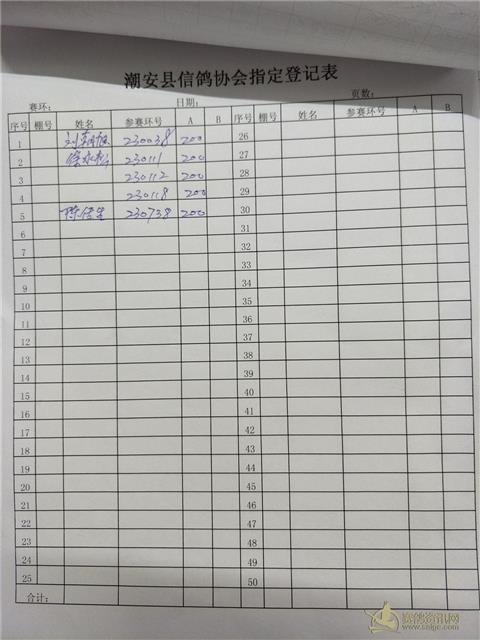 潮安县信鸽协会指定登记表
赛环： 日期： 页数：
序号 棚号 姓名 参赛环号 A B 序号 棚号 姓名 参赛环号 A B
1 230038 200 26
2 230111 200 27
3 230112 200 28
4 230118 200 29
5 230738 200 30
6 31
7 32
8 33
9 34
10 35
11 36
12 37
13 38
14 39
15 40
16 41
17 42
18 43
19 44
20 45
21 46
22 47
23 48
24 49
25 50
合计：
赛鸽资讯网
www.snipc.com